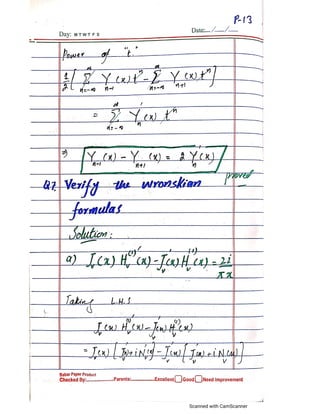 P-13
Day: M T W T F S Date:.../.../...
Power of "t"
1/2 [ ∞ Σ n=-∞ Y n-1 (x) t^n - ∞ Σ n=-∞ Y n+1 (x) t^n ]
= ∞ Σ n=-∞ Y'n (x) t^n
⇒ Y n-1 (x) - Y n+1 (x) = 2 Y'n (x)
proved
Q7 Verify the wronskian
formulas
Solution:
a) Jv(x) Hv^(1)'(x) - J'v(x) Hv^(1)(x) = 2i/πx
Taking L.H.S
Jv(x) Hv^(1)'(x) - J'v(x) Hv^(1)(x)
= Jv(x) [J'v(x) + iN'v(x)] - J'v(x) [Jv(x) + iNv(x)]
Checked By: Parents: Excellent Good Need Improvement
Scanned with CamScanner